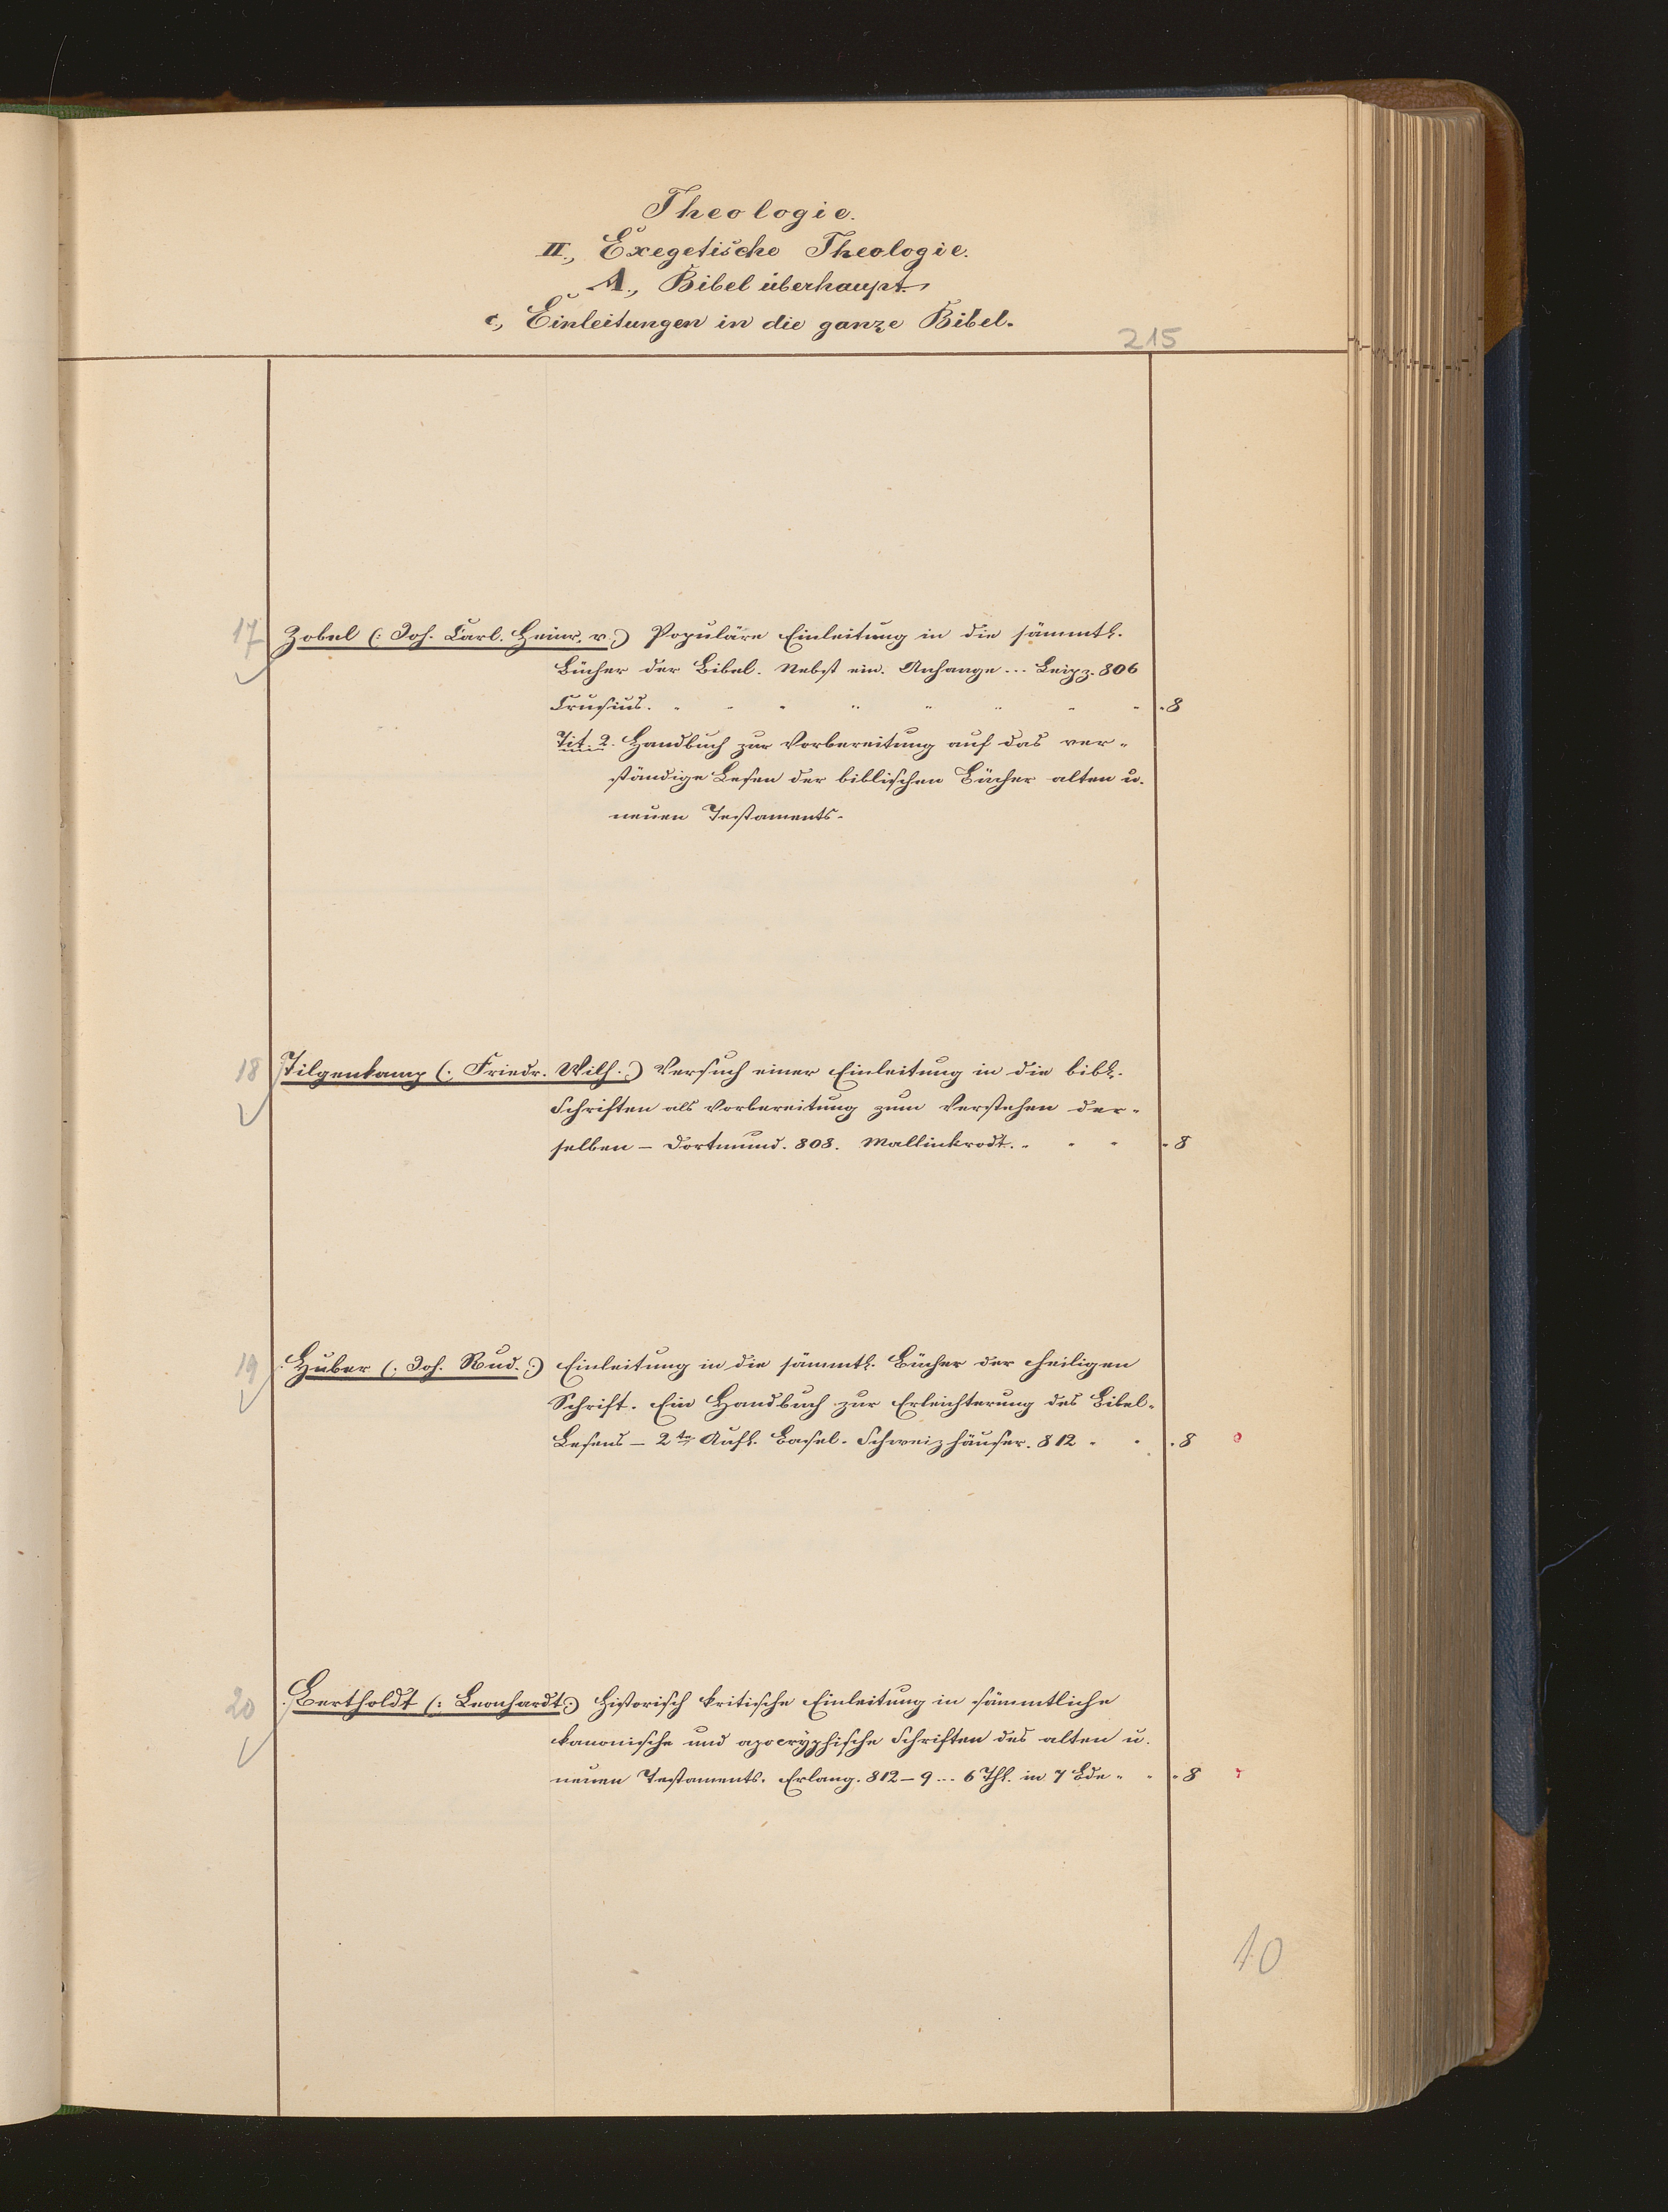 Theologie.
II., Exegetische Theologie.
A., Bibel überhaupt.
c., Einleitungen in die ganze Bibel.
215
17 Zobel (: Joh. Carl. Heinr. v. :) Populäre Einleitung in die sämmtl.
Bücher der Bibel. Nebst ein. Anhange ... Leipz. 806
Crusius. 8
Tit. 2. Handbuch zur Vorbereitung auf das ver-
ständige Lesen der biblischen Bücher alten u.
neuen Testaments.
18 Tilgenkamp (: Friedr. Wilh. :) Versuch einer Einleitung in die bibl.
Schriften als Vorbereitung zum Verstehen der-
selben – Dortmund. 808. Mallinkrodt. 8
19 Huber (: Joh. Rud. :) Einleitung in die sämmtl. Bücher der heiligen
Schrift. Ein Handbuch zur Erleichterung des Bibel-
Lesens – 2te Aufl. Basel. Schweizhäuser. 812 8
20 Bertholdt (: Leonhardt :) Historisch kritische Einleitung in sämmtliche
kanonische und apocryphische Schriften des alten u.
neuen Testaments. Erlang. 812–9 ... 6 Thl. in 7 Bde 8
10